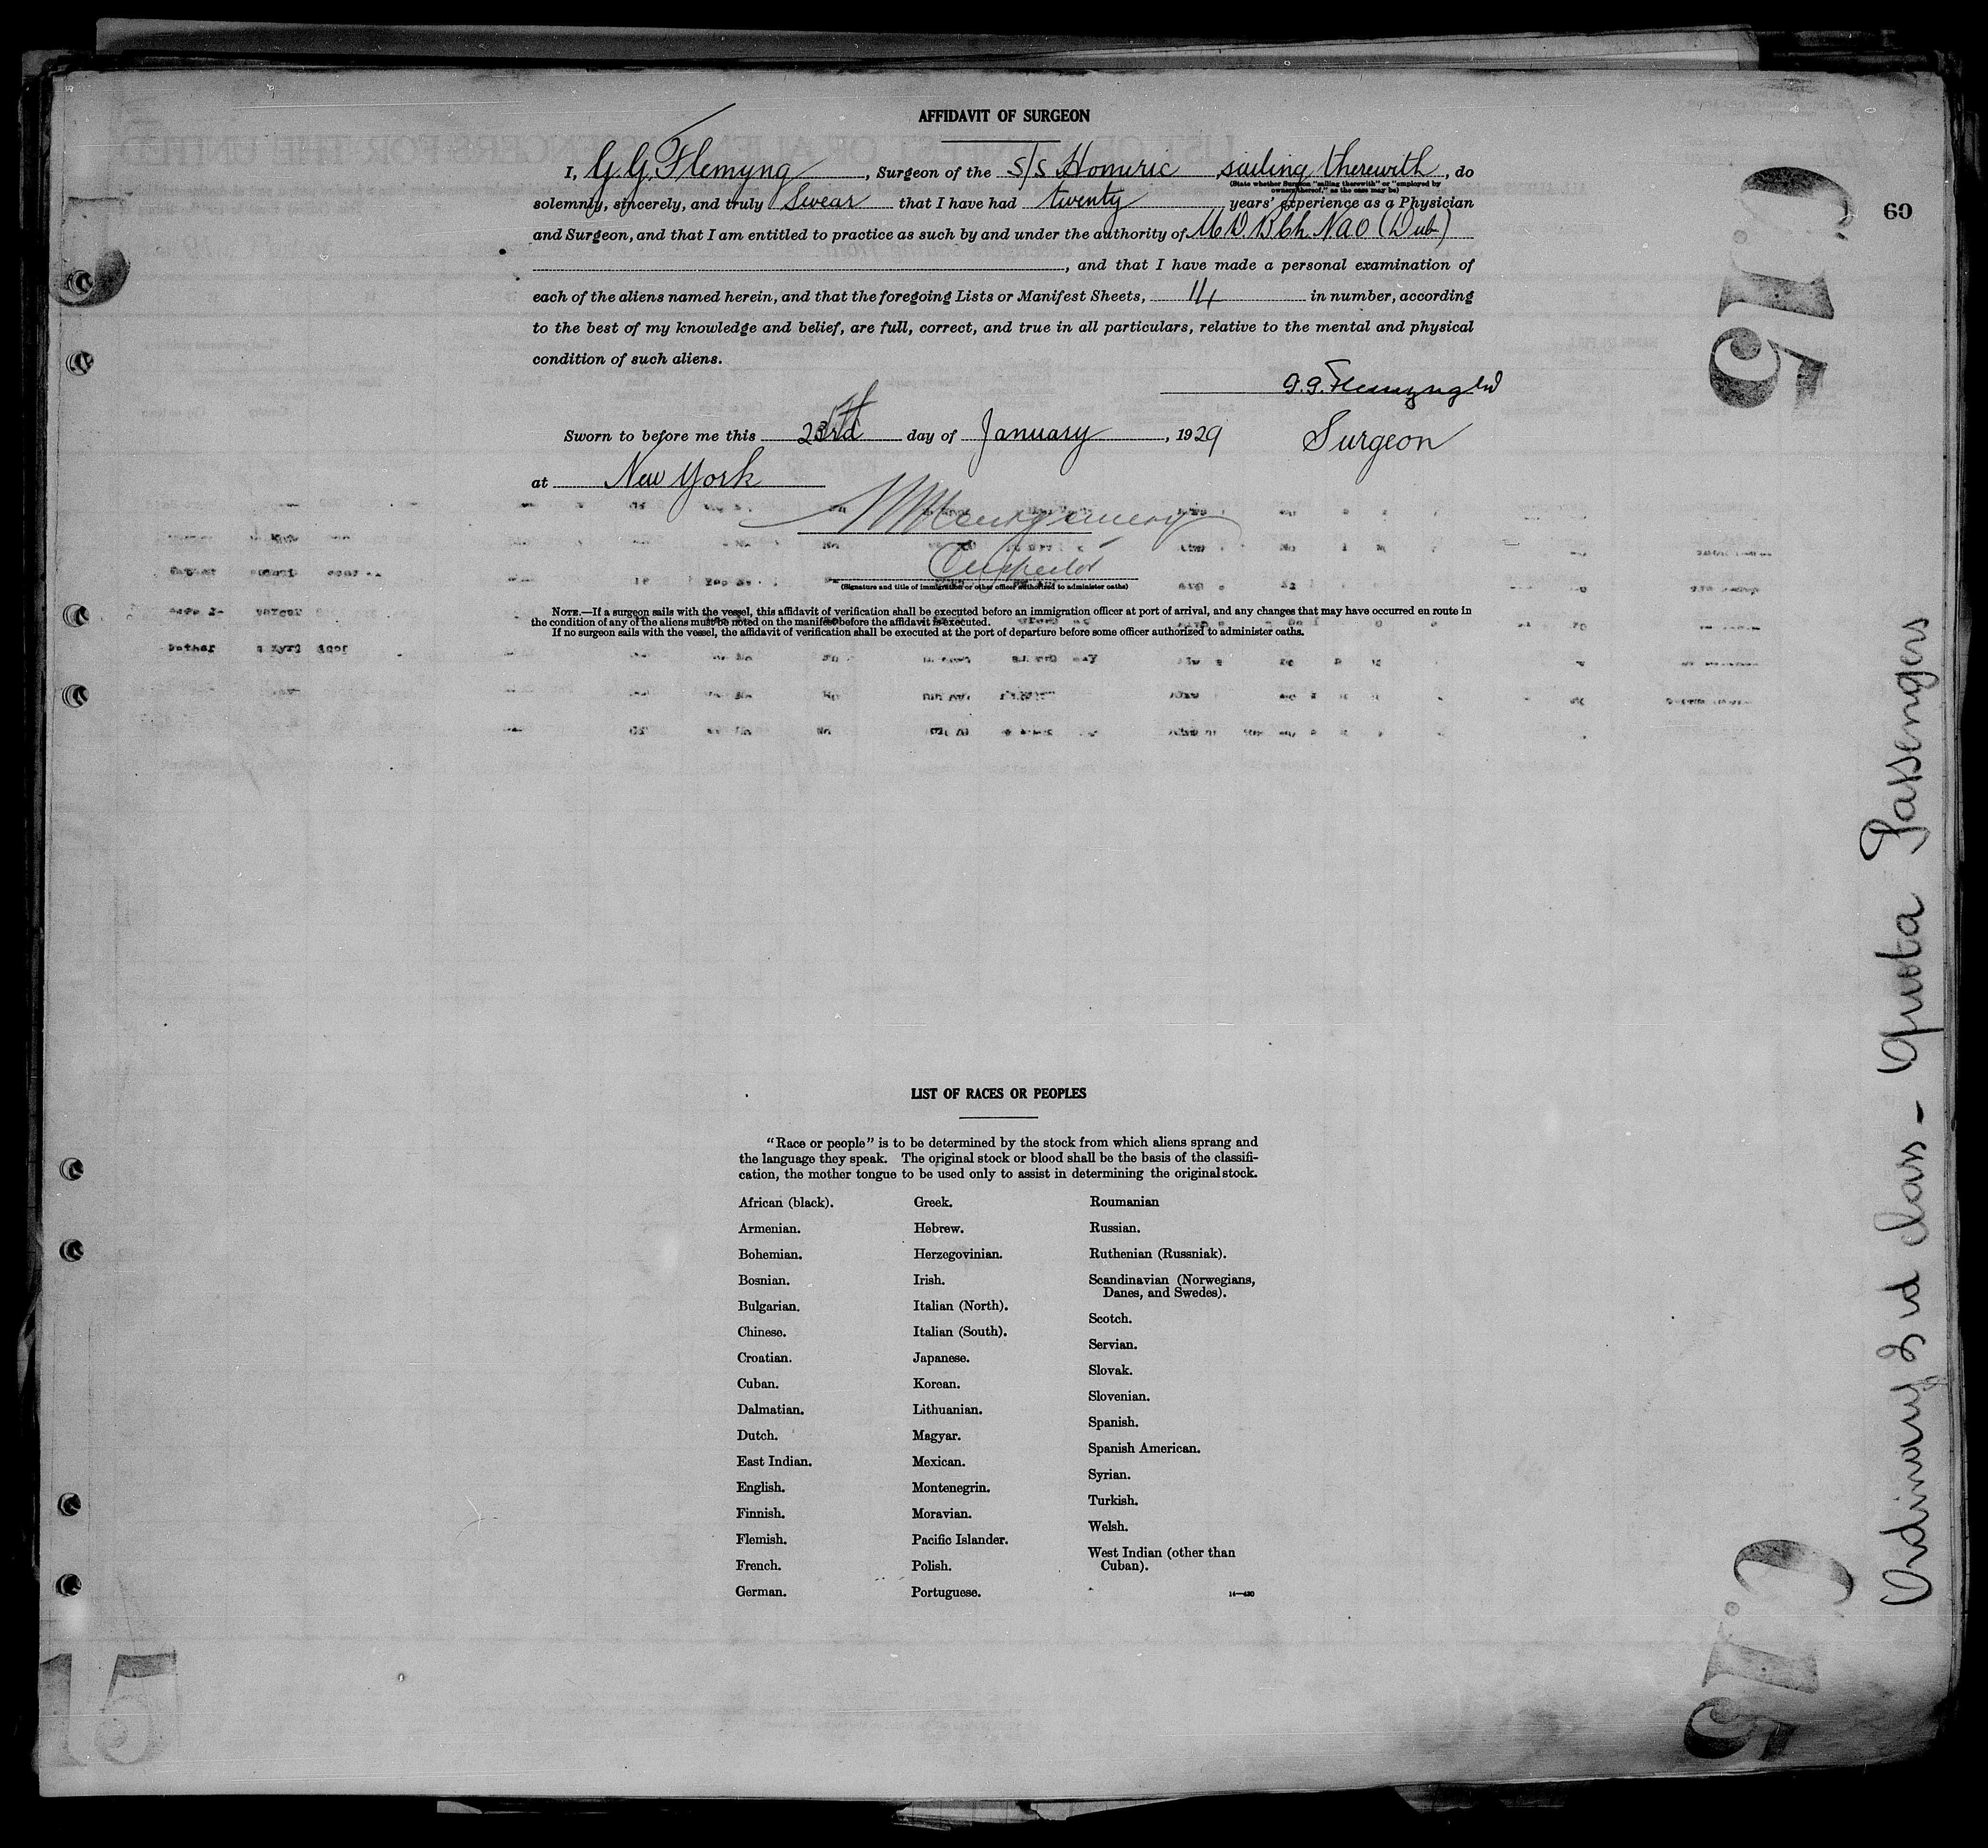 AFFIDAVIT OF SURGEON
I, G. G. Flemyng, Surgeon of the S/S Homeric sailing therewith, do
(State whether Surgeon "sailing therewith" or "employed by
owners thereof," as the case may be)
solemnly, sincerely, and truly Swear that I have had twenty years' experience as a Physician
and Surgeon, and that I am entitled to practice as such by and under the authority of M.D. B.Ch. (Dub)
, and that I have made a personal examination of
each of the aliens named herein, and that the foregoing Lists or Manifest Sheets, in number, according
to the best of my knowledge and belief, are full, correct, and true in all particulars, relative to the mental and physical
condition of such aliens.
G. G. Flemyng
Sworn to before me this day of January, 1929 Surgeon
at New York
Inspector
(Signature and title of immigration or other officer authorized to administer oaths)
NOTE.—If a surgeon sails with the vessel, this affidavit of verification shall be executed before an immigration officer at port of arrival, and any changes that may have occurred en route in
the condition of any of the aliens must be noted on the manifest before the affidavit is executed.
If no surgeon sails with the vessel, the affidavit of verification shall be executed at the port of departure before some officer authorized to administer oaths.
60
C.15
Ordinary 3rd class - Quota Passengers
C.15
15
LIST OF RACES OR PEOPLES
"Race or people" is to be determined by the stock from which aliens sprang and
the language they speak. The original stock or blood shall be the basis of the classifi-
cation, the mother tongue to be used only to assist in determining the original stock.
African (black).
Armenian.
Bohemian.
Bosnian.
Bulgarian.
Chinese.
Croatian.
Cuban.
Dalmatian.
Dutch.
East Indian.
English.
Finnish.
Flemish.
French.
German.
Greek.
Hebrew.
Herzegovinian.
Irish.
Italian (North).
Italian (South).
Japanese.
Korean.
Lithuanian.
Magyar.
Mexican.
Montenegrin.
Moravian.
Pacific Islander.
Polish.
Portuguese.
Roumanian
Russian.
Ruthenian (Russniak).
Scandinavian (Norwegians,
Danes, and Swedes).
Scotch.
Servian.
Slovak.
Slovenian.
Spanish.
Spanish American.
Syrian.
Turkish.
Welsh.
West Indian (other than
Cuban).
14—430